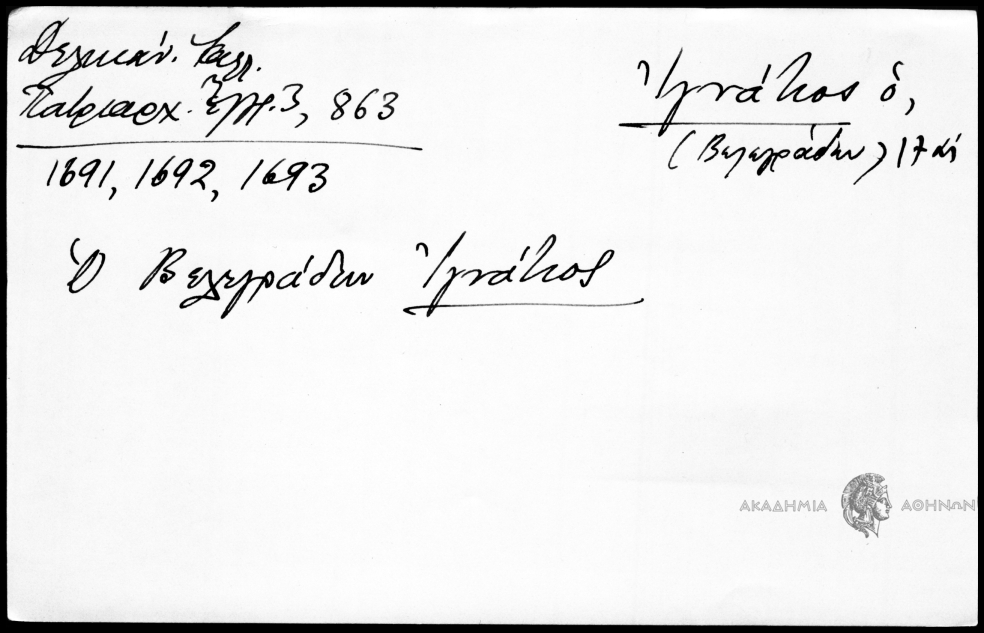 Δελικάν. Καλ.
Πατριαρχ. Ἔγγρ. 3, 863
1691, 1692, 1693
Ἰγνάτιος ὁ,
(Βελεγράδων) 17 αἰ
Ὁ Βελεγράδων Ἰγνάτιος
ΑΚΑΔΗΜΙΑ ΑΘΗΝΩΝ